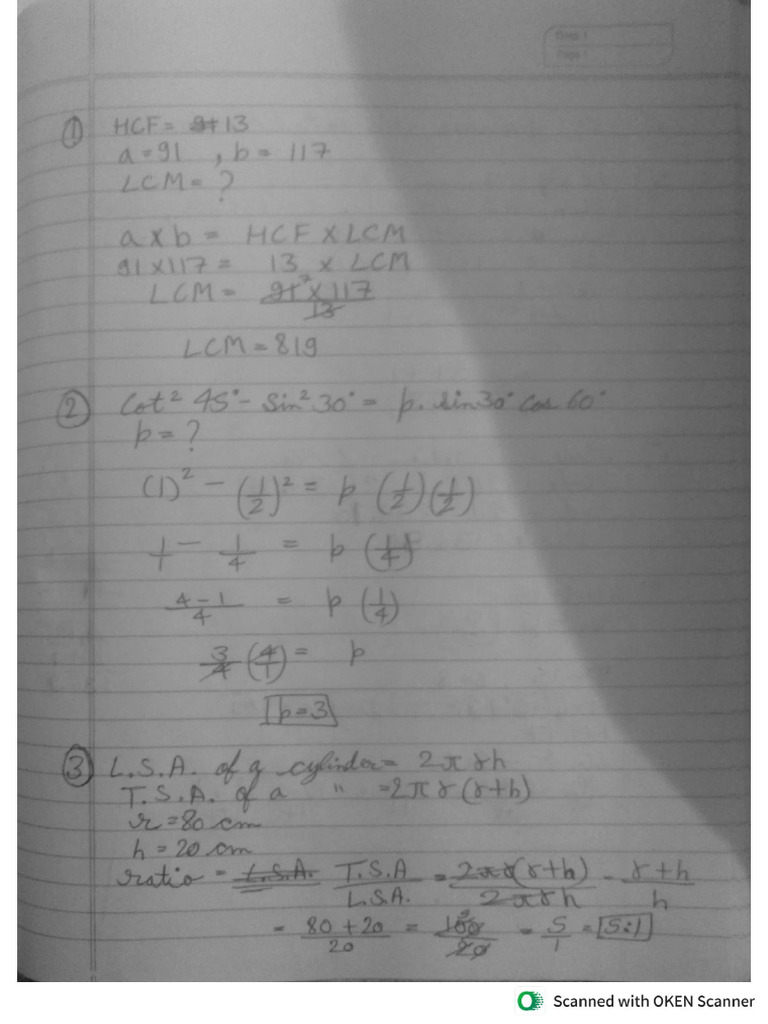 ① HCF = 13
a = 91 , b = 117
LCM = ?
a x b = HCF X LCM
91 x 117 = 13 x LCM
LCM = 91⁷ x 117 / 13
LCM = 819
② Cot² 45° - Sin² 30° = p. sin 30° cos 60°
p = ?
(1)² - (1/2)² = p (1/2)(1/2)
1/1 - 1/4 = p (1/4)
4-1/4 = p (1/4)
3/4 (4/1) = p
p = 3
③ L.S.A. of a cylinder = 2πrh
T.S.A. of a " = 2πr(r+h)
r = 80 cm
h = 20 cm
ratio = L.S.A. T.S.A / L.S.A. = 2πr(r+h) / 2πrh = r+h / h
= 80+20 / 20 = 100⁵ / 20 = 5/1 = 5:1
Scanned with OKEN Scanner